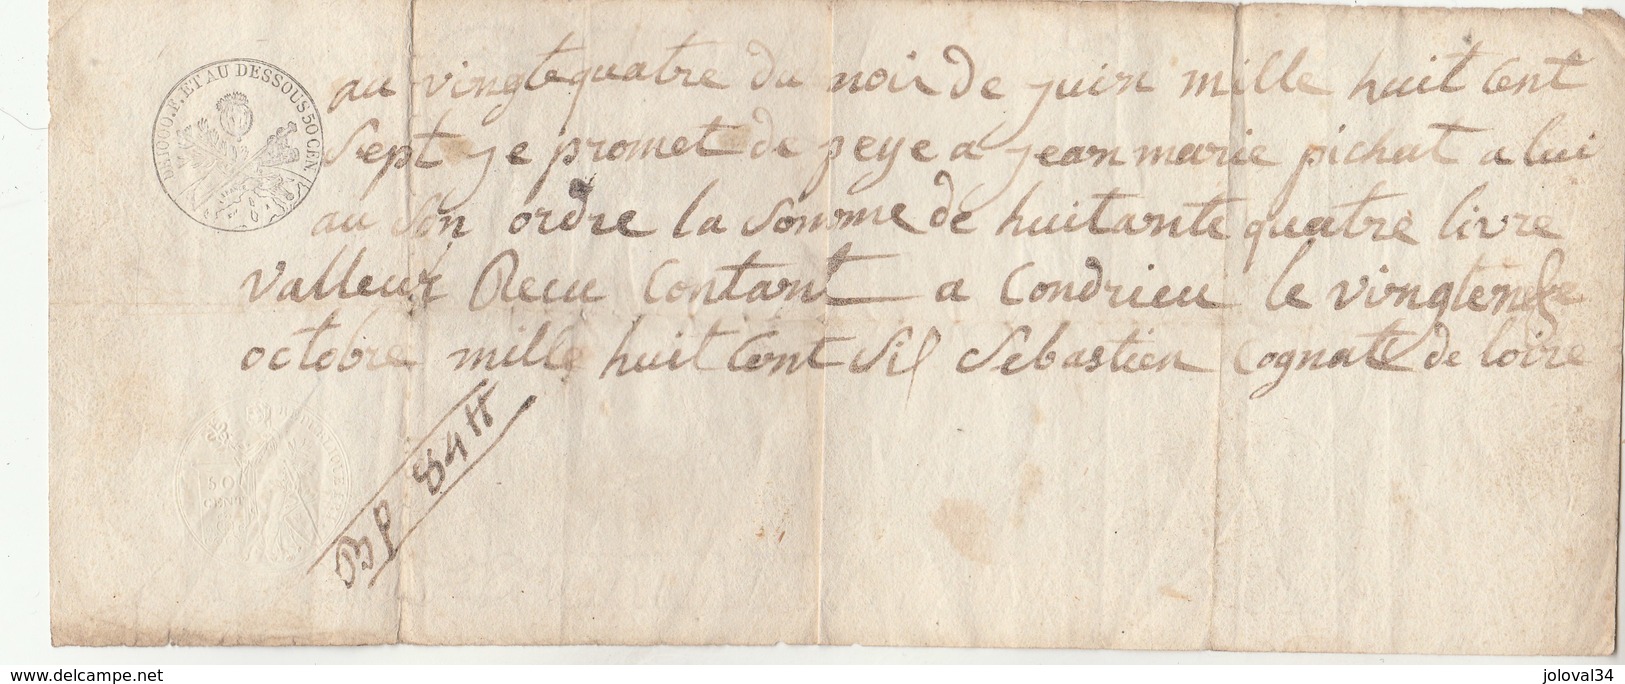 DE 1000.F. ET AU DESSOUS 50 CEN.
au vingtequatre du moir de juin mille huit Cent
Sept je promet de peye a jean marie pichat a lui
au son ordre la Somme de huitante quatre livre
valleur Recu Contant a Condrieu le vingt
octobre mille huit Cent Sil Sebastien Cognate de loire
50
CENT
BP 84 tt
joloval34